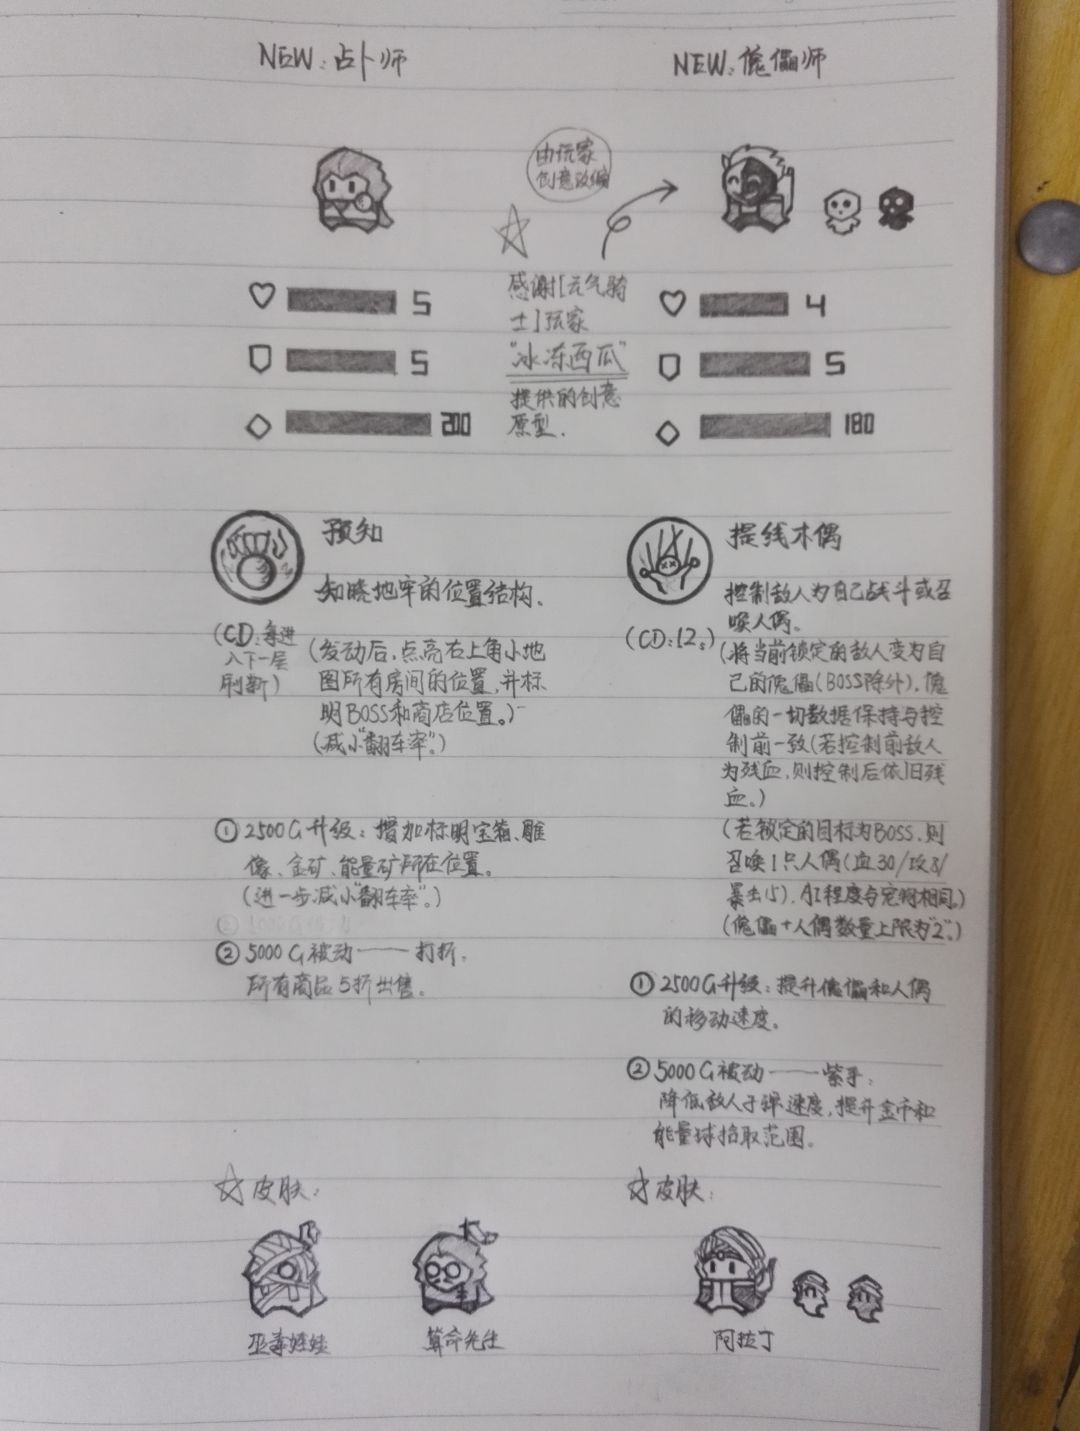 NEW:占卜师
NEW:傀儡师
由玩家
创意改编
感谢[元气骑
士]玩家
"冰冻西瓜"
提供的创意
原型.
5
5
200
4
5
180
预知
知晓地牢的位置结构.
(CD:每进
入下一层
刷新)
(发动后,点亮右上角小地
图所有房间的位置,并标
明BOSS和商店位置。)
(减小"翻车率"。)
① 2500G升级:增加标明宝箱、雕
像、金矿、能量矿所在位置。
(进一步减小"翻车率"。)
② 5000G被动——打折:
所有商品5折出售。
提线木偶
控制敌人为自己战斗或召
唤人偶。
(CD:12s)
(将当前锁定的敌人变为自
己的傀儡(BOSS除外),傀
儡的一切数据保持与控
制前一致(若控制前敌人
为残血,则控制后依旧残
血。)
(若锁定的目标为BOSS,则
召唤1只人偶(血30/攻3/
暴击15),AI程度与宠物相同。)
(傀儡+人偶数量上限为"2"。)
① 2500G升级:提升傀儡和人偶
的移动速度。
② 5000G被动——紫手:
降低敌人子弹速度,提升金币和
能量球拾取范围。
☆皮肤:
巫毒娃娃
算命先生
☆皮肤:
阿拉丁